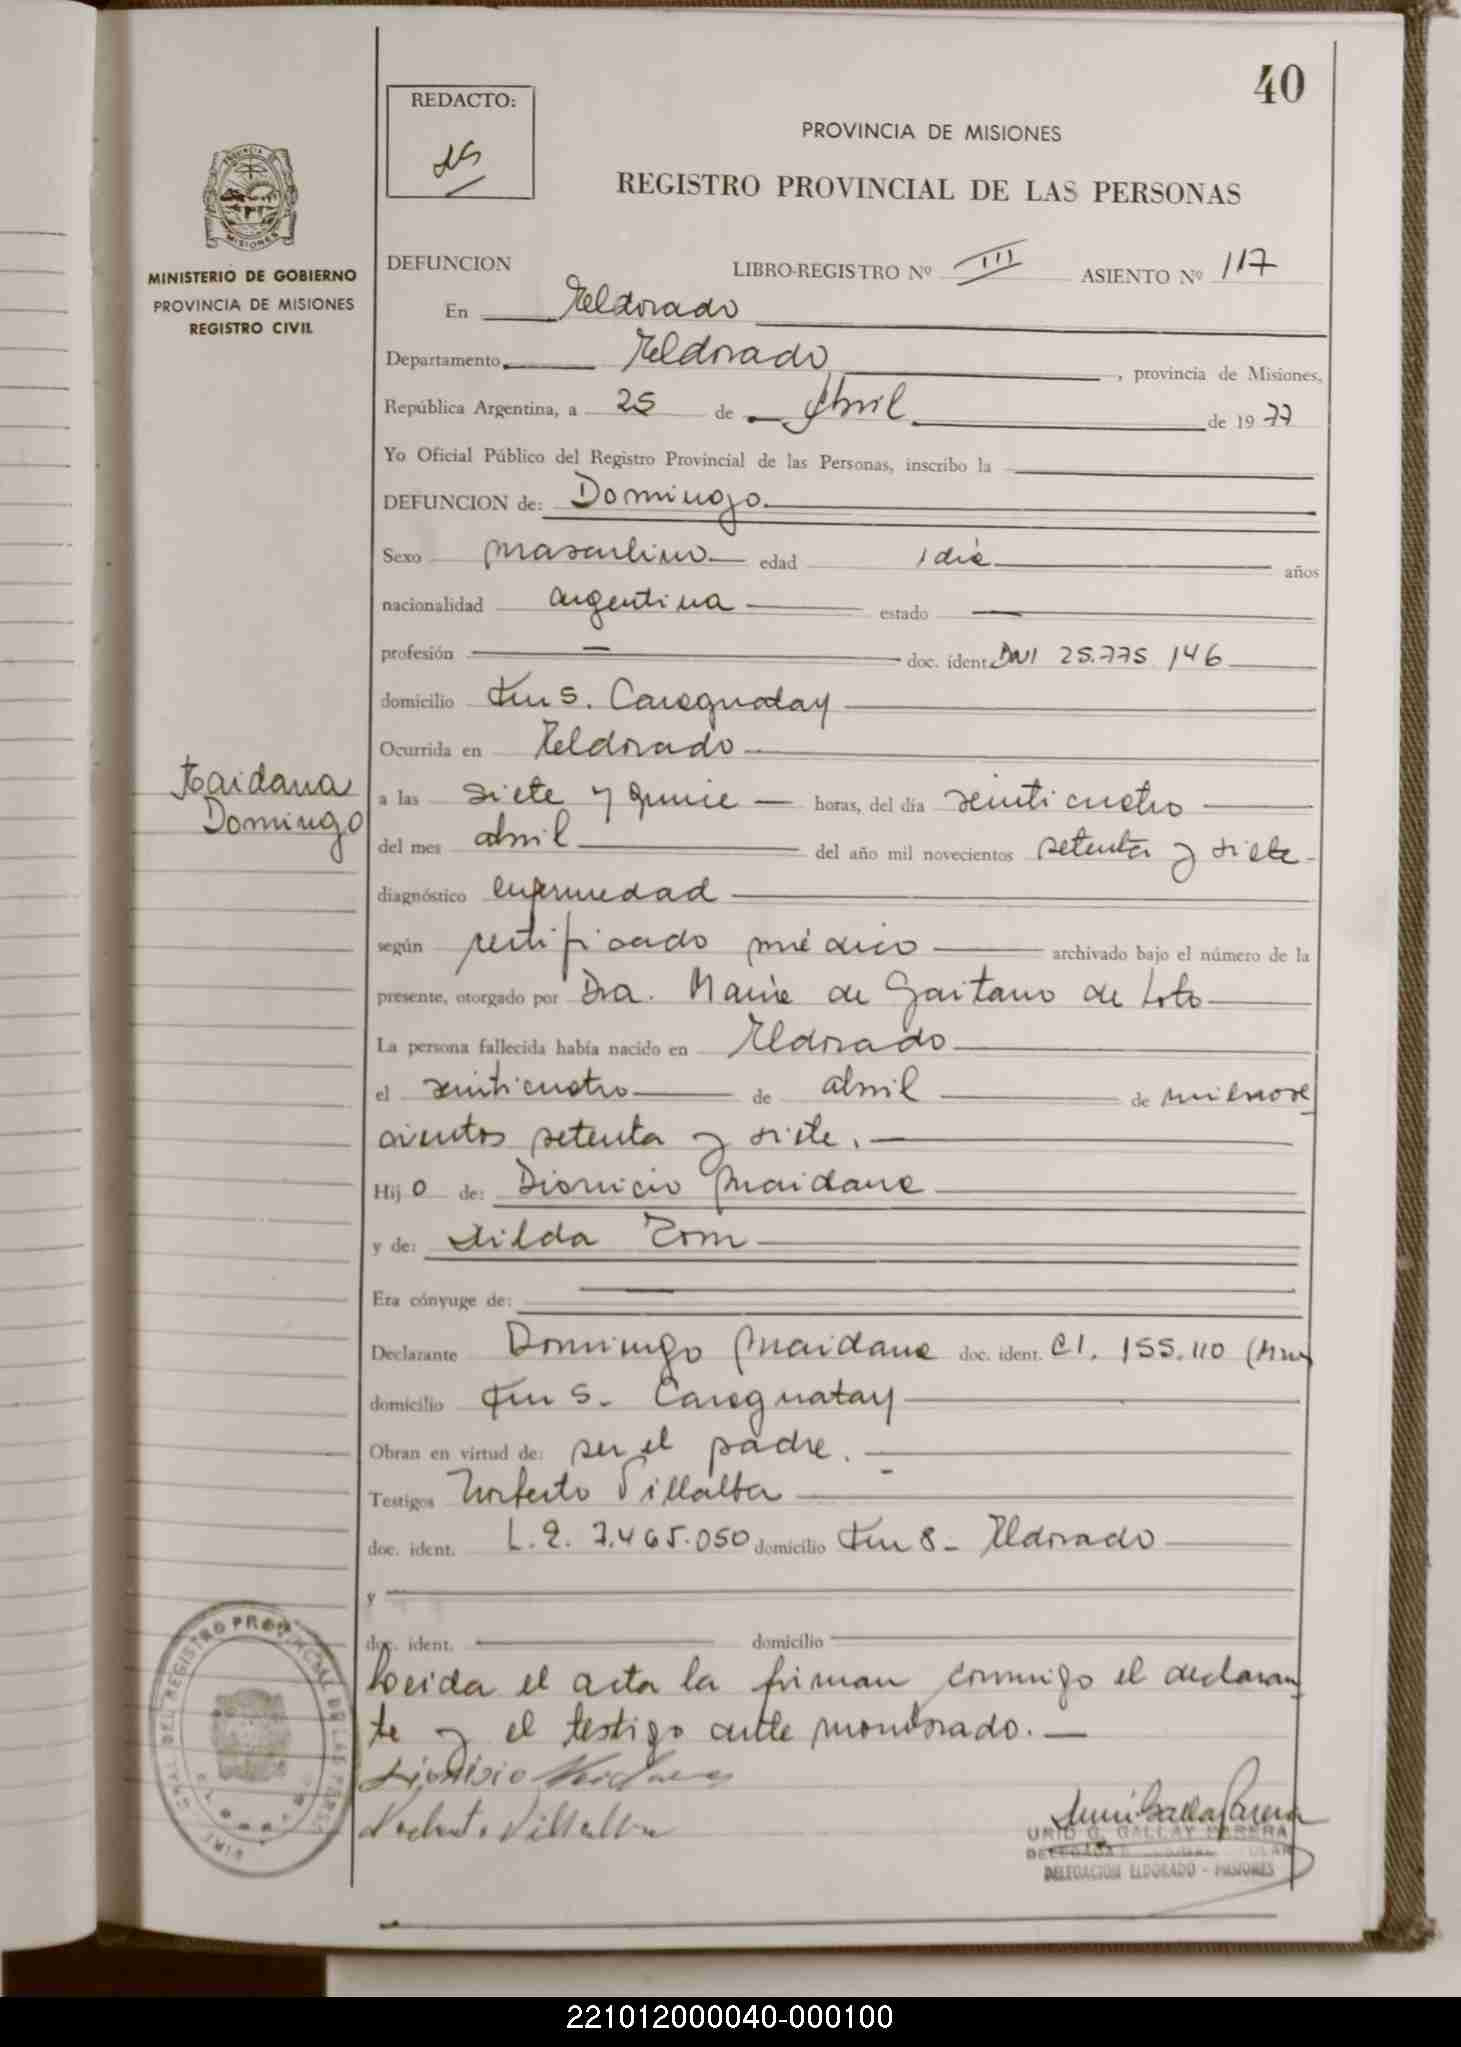 40
REDACTO:
PROVINCIA DE MISIONES
REGISTRO PROVINCIAL DE LAS PERSONAS
MINISTERIO DE GOBIERNO
PROVINCIA DE MISIONES
REGISTRO CIVIL
DEFUNCION LIBRO-REGISTRO Nº III ASIENTO Nº 117
En Eldorado
Departamento Eldorado, provincia de Misiones,
República Argentina, a 25 de Abril de 1977
Yo Oficial Público del Registro Provincial de las Personas, inscribo la
DEFUNCION de: Domingo
Sexo masculino edad 1 día años
nacionalidad argentina estado —
profesión — doc. ident. DNI 25.775.146
domicilio Km 5. Caraguatay
Ocurrida en Eldorado
Maidana
Domingo
a las siete y quince horas, del día veinticuatro
del mes abril del año mil novecientos setenta y siete
diagnóstico enfermedad
según certificado médico archivado bajo el número de la
presente, otorgado por Dra. María de Gaitano de
La persona fallecida había nacido en Eldorado
el veinticuatro de abril de milnove
cientos setenta y siete.
Hijo de: Dionicio Maidana
y de: Hilda
Era cónyuge de: —
Declarante Domingo Maidana doc. ident. CI. 155.110 (Mnes
domicilio Km 5. Caraguatay
Obran en virtud de: ser el padre.
Testigos Norberto Villalba
doc. ident. L.E. 7.465.050 domicilio Km 8 - Eldorado
y
doc. ident. domicilio
Leida el acta la firman conmigo el declaran
te y el testigo ante mombrado.
Dionisio Maidana
Norberto Villalba
GALLAY PARERA
DELEGACION ELDORADO - MISIONES
221012000040-000100